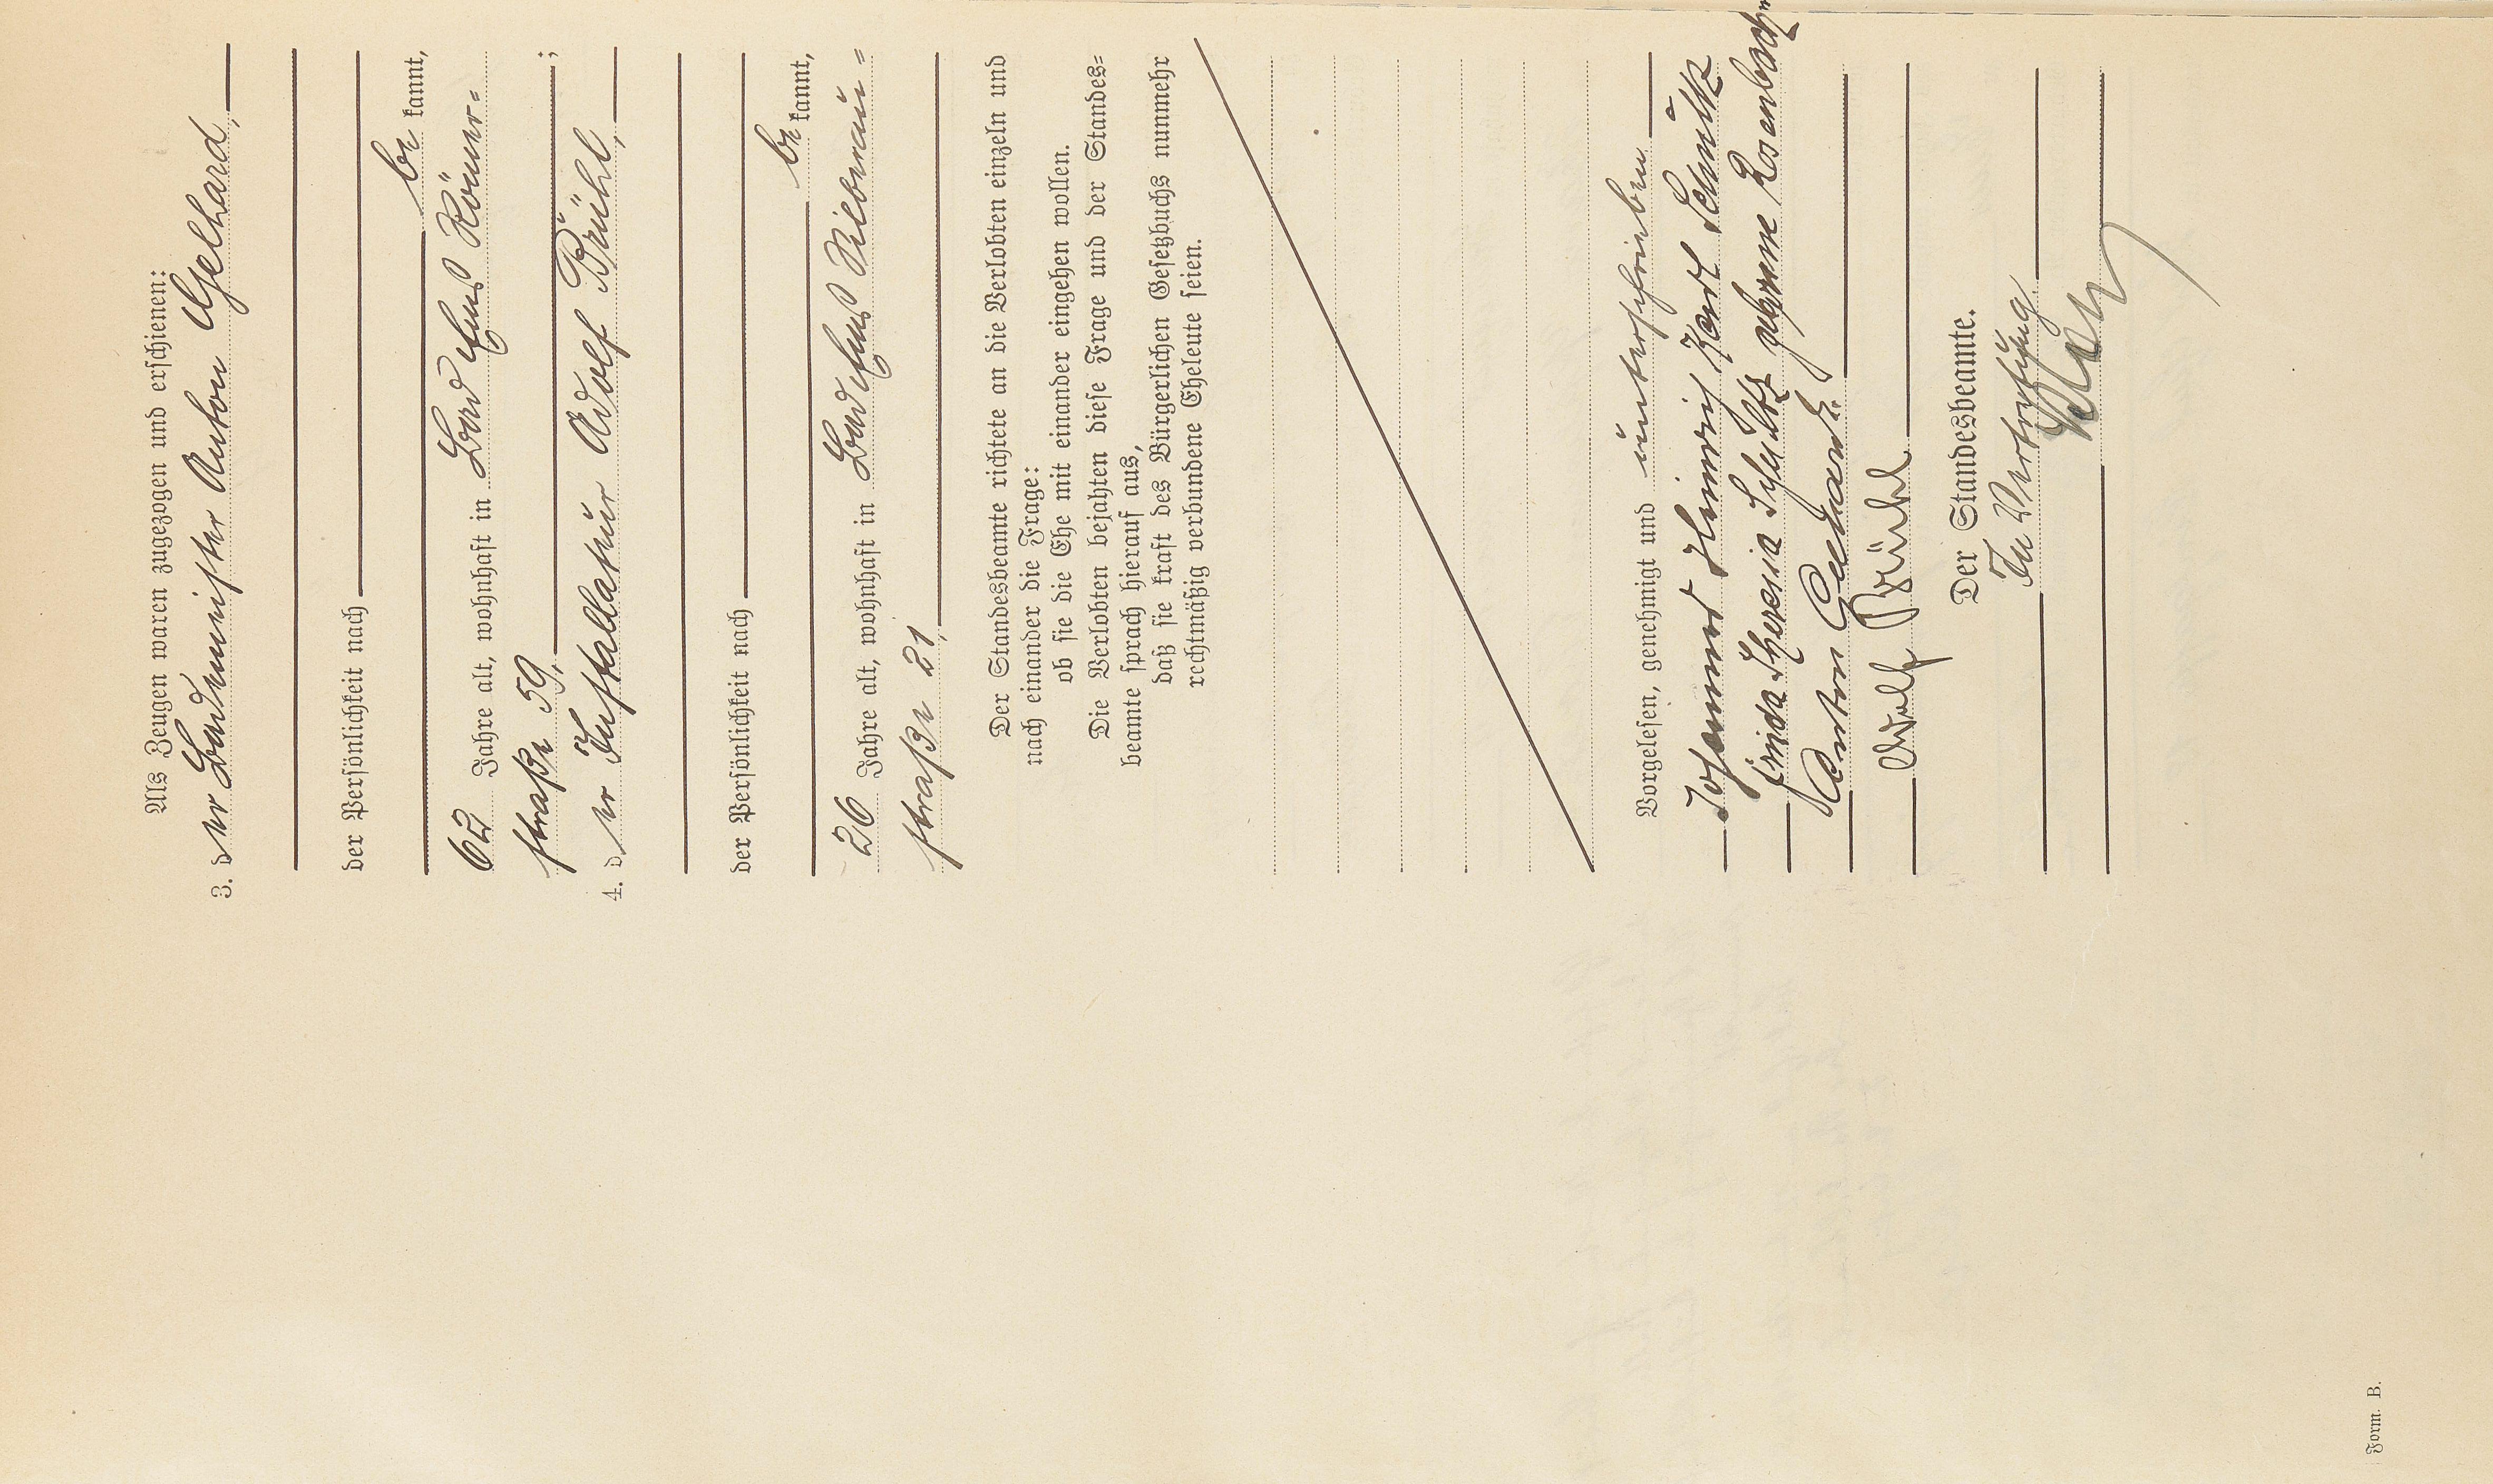 Als Zeugen waren zugezogen und erschienen:
3. der Bademeister Anton Gelhard,
der Persönlichkeit nach
be kannt,
62 Jahre alt, wohnhaft in Bad Ems Römer=
straße 59, ;
4. der Installateur Adolf Brühl,
der Persönlichkeit nach
be kannt,
26 Jahre alt, wohnhaft in Bad Ems
straße 21,
Der Standesbeamte richtete an die Verlobten einzeln und
nach einander die Frage:
ob sie die Ehe mit einander eingehen wollen.
Die Verlobten bejahten diese Frage und der Standes=
beamte sprach hierauf aus,
daß sie kraft des Bürgerlichen Gesetzbuchs nunmehr
rechtmäßig verbundene Eheleute seien.
Vorgelesen, genehmigt und unterschrieben
Heinrich Karl
Theresia geborene Rosenbach
Anton Gelhard
Adolf Brühl
Der Standesbeamte.
In Vertretung.
Form. B.